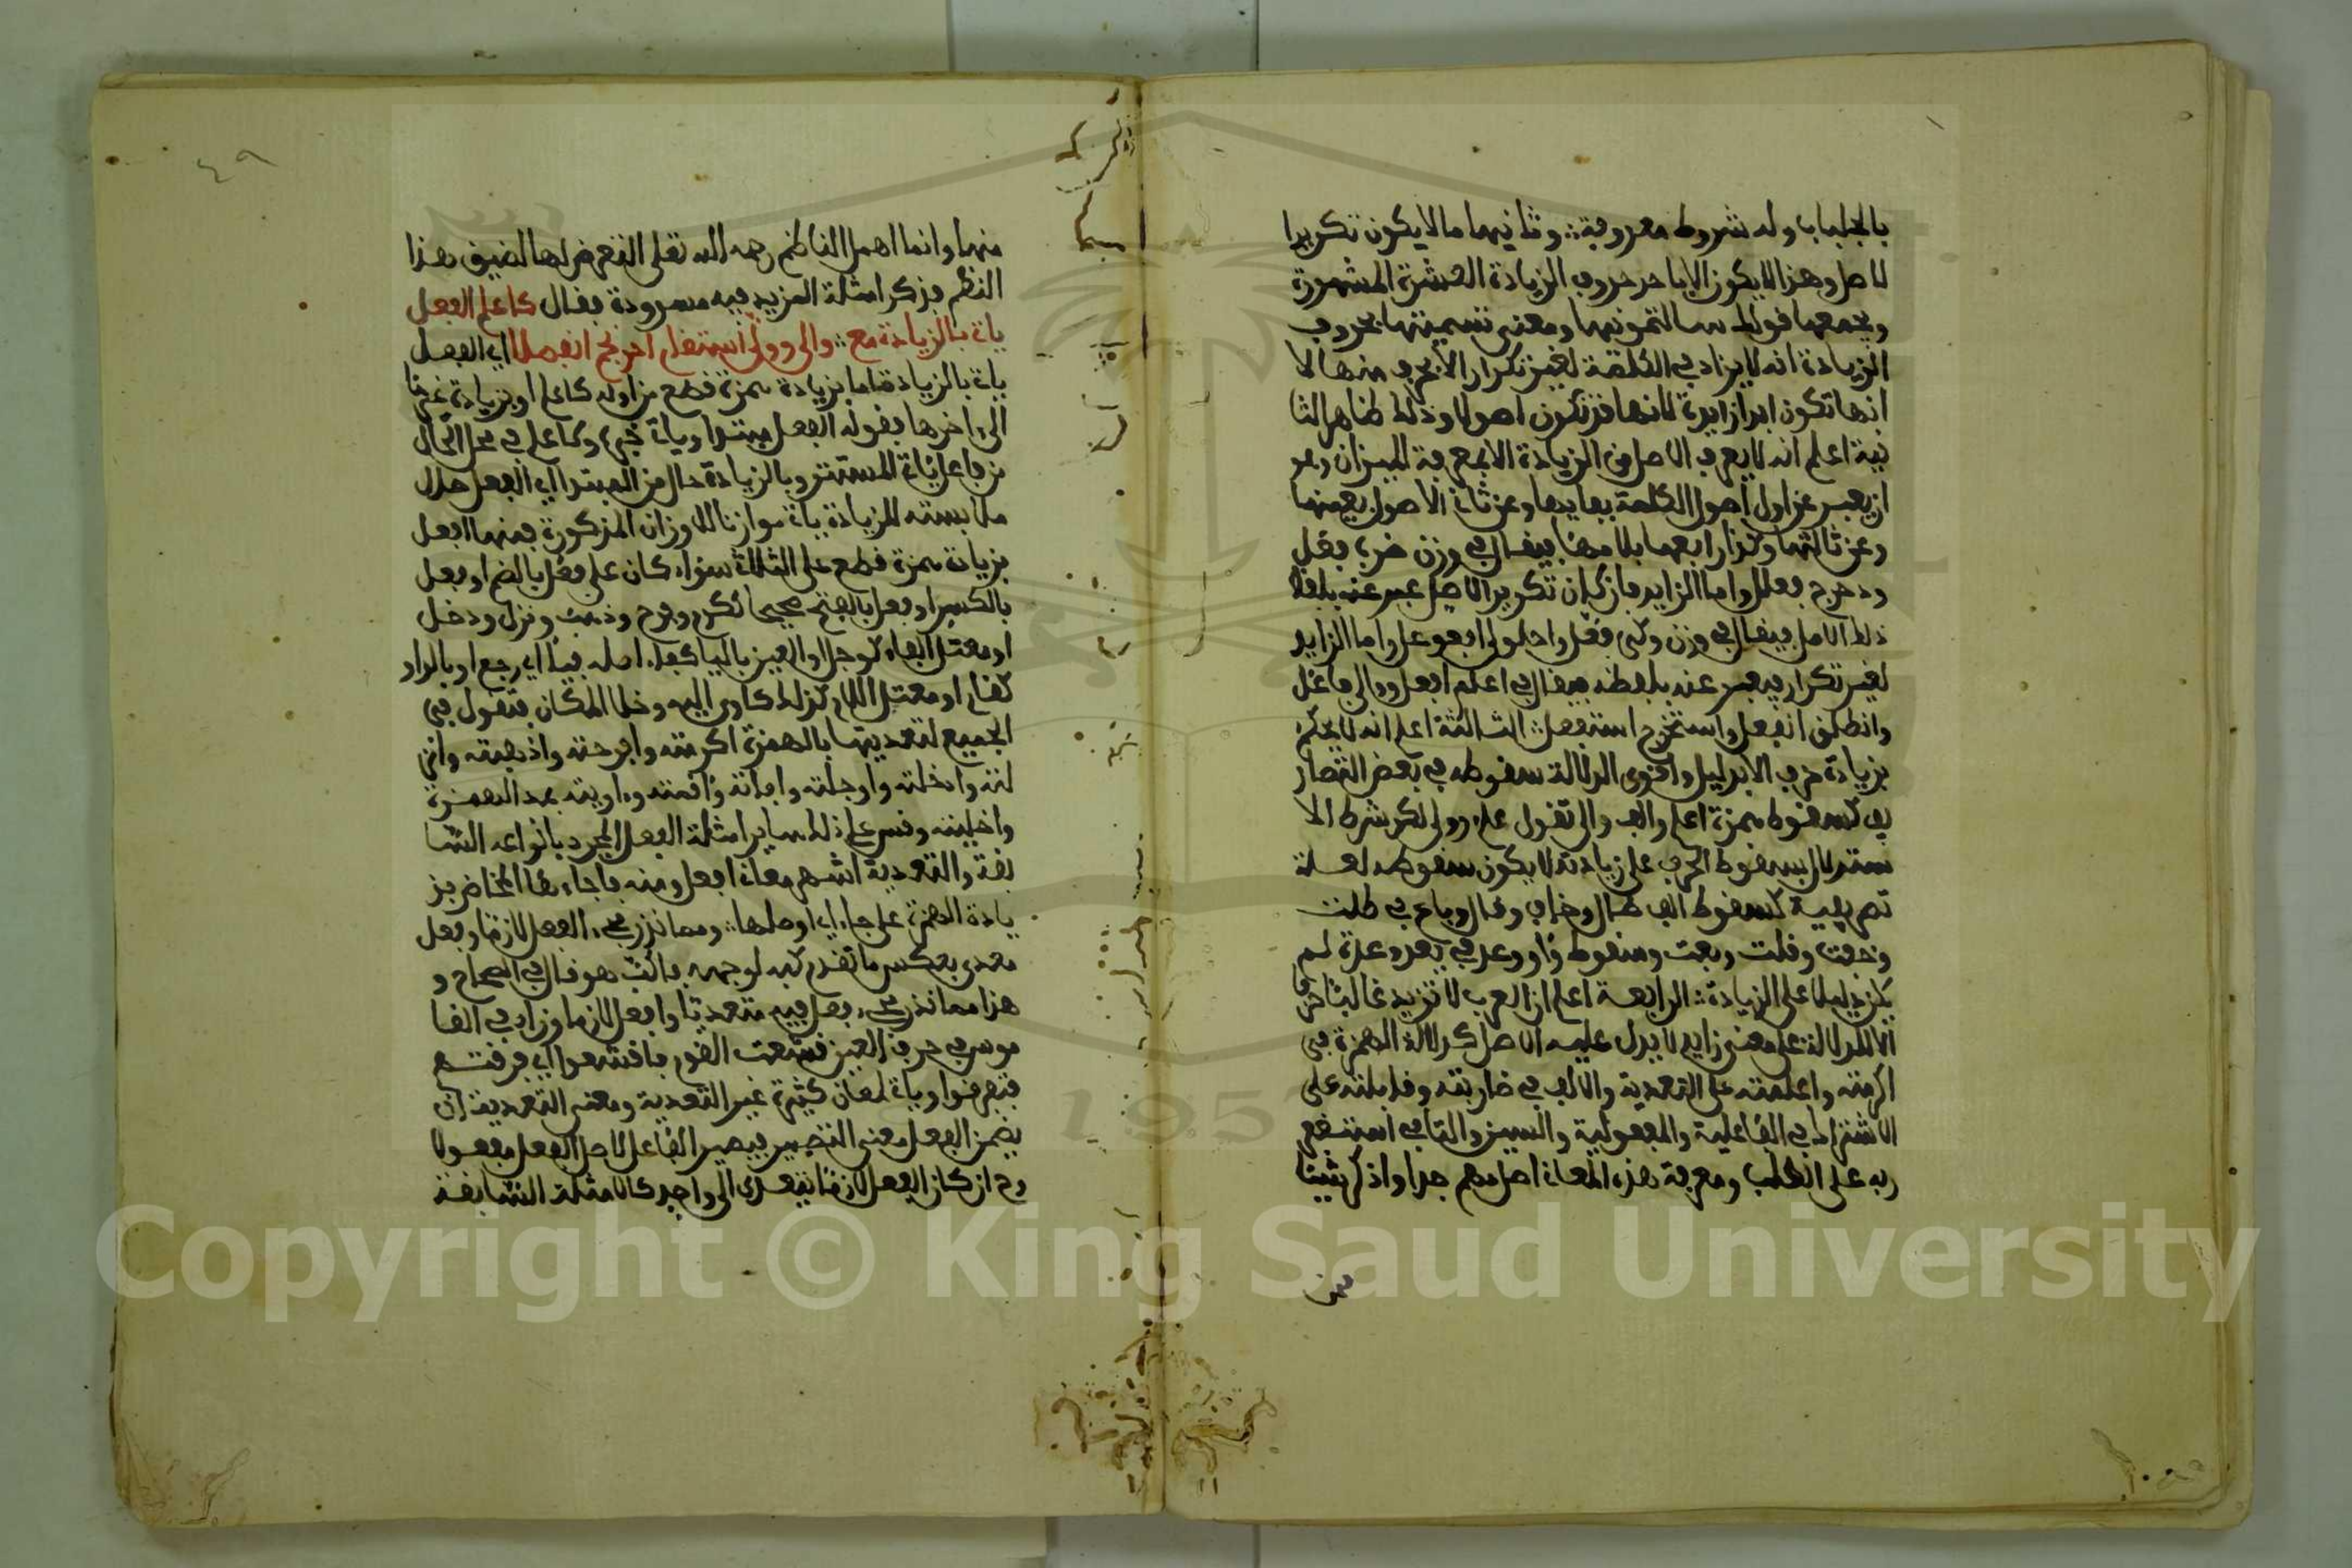 بالجلباب وله شروط معروفة وثانيهما ما لا يكون تكريرا
لاصل وهذا لا يكون الا باحد حروف الزيادة العشرة المشهورة
ويجمعها قولك سالتمونيها ومعنى تسميتها بحروف
الزيادة انه لا يزاد في الكلمة لغير تكرار الا بحرف منها لا
انها تكون ابدا زايدة لانها قد تكون اصولا وذلك ظاهر الثا
نية اعلم انه لا يعرف الاصل من الزيادة الا بمعرفة الميزان وهو
ان يعبر عن اول اصول الكلمة بفايها وعن ثاني الاصول بعينها
وعن ثالثها وكذا رابعها بلامها فيقال في وزن ضرب فعل
ودحرج فعلل واما الزايد فان كان تكرير الاصل عبر عنه بلفظ
ذلك الاصل فيقال في وزن ولى فعل واحلولى افعوعل واما الزايد
لغير تكرار فيعبر عنه بلفظه فيقال في اعلم افعل ووالى فاعل
وانطلق انفعل واستخرج استفعل الثالثة اعلم انه لا يحكم
بزيادة حرف الا بدليل واقوى الدلالة سقوطه في بعض التصار
يف كسقوط همزة اعلم والف والى تقول علم وولى لكن شرط الا
ستدلال بسقوط الحرف على زيادته ان لا يكون سقوطه لعلة
تصريفية كسقوط الف طال وخاف وقال وباع في طلت
وخفت وقلت وبعت وسقوط واو وعد في يعد وعدة لم
يكن دليلا على الزيادة الرابعة اعلم ان العرب لا تزيد غالبا حرفا
الا للدلالة على معنى زايد لا يدل عليه الاصل كدلالة الهمزة في
اكرمته واعلمته على التعدية والالف في ضاربته وقابلته على
الاشتراك في الفاعلية والمفعولية والسين والتا في استغفر
ربه على الطلب ومعرفة هذه المعاني اصل مهم جدا واذكر شيئا
منها وانما اهمل الناظم رحمه الله تعلى التعرض لها لضيق هذا
النظم فذكر امثلة المزيد فيه مسرودة فقال كاعلم الفعل
ياتي بالزيادة مع والى وولى استقام احرنجم انفصلا اي الفعل
ياتي بالزيادة اما بزيادة همزة قطع من اوله كاعلم او بزيادة غيرها
الى اخرها فقوله الفعل مبتدا وياتي خبره وكاعلم في محل الحال
من فاعل ياتي المستتر وبالزيادة حال من المبتدا اي الفعل حال
ملابسته للزيادة ياتي موازنا للاوزان المذكورة فمنها افعل
بزيادة همزة قطع على الثلاثي سواء كان على فعل بالضم او فعل
بالكسر او فعل بالفتح صحيحا ككرم وفرح وذهب ونزل ودخل
او معتل الفاء كوجل او العين باليا كفاء اصله فيا اي رجع او بالواو
كقام او معتل اللام كذلك كاوى اليه وخلا المكان فتقول في
الجميع لتعديتها بالهمزة اكرمته وافرحته واذهبته وانز
لته وادخلته واوجلته وافاته واقمته واويته بمد الهمزة
واخليته وقس على ذلك ساير امثلة الفعل المجرد بانواعه السا
بقة والتعدية اشهر معاني افعل ومنه فاجاءها المخاض بز
يادة الهمزة على جاء اي اوصلها ومما نزر مجيء الفعل لازما وفعل
معدى بعكس ما تقدم كبه لوجهه فاكب هو قال في الصحاح و
هذا مما ندر مجيء فعل فيه متعديا وافعل لازما وزاد في القا
موس في حرف العين قشعت القوم فاقشعوا اي فرقتهم
فتفرقوا وياتي لمعان كثيرة غير التعدية ومعنى التعدية ان
يضمن الفعل معنى التصيير فيصير الفاعل لاصل الفعل مفعولا
وح ان كان الفعل لازما يتعدى الى واحد كالامثلة السابقة
Copyright © King Saud University
195